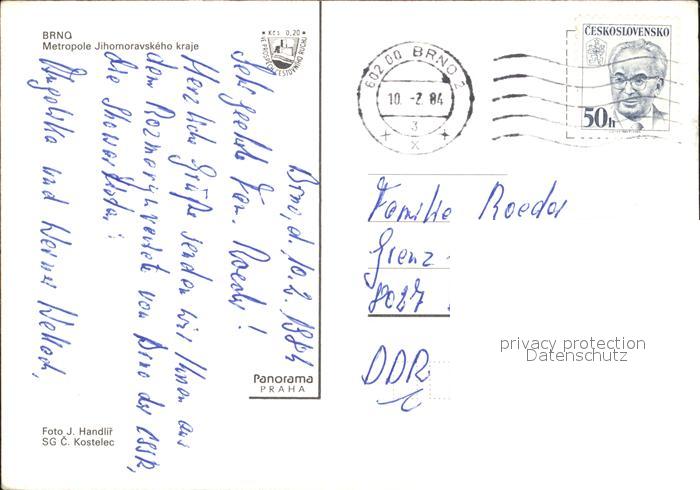 BRNO
Metropole Jihomoravského kraje
Kčs 0,20
Brno, d. 10.2.1984
Sehr geehrte Fam. Roeder!
Herzliche Grüße senden wir Ihnen aus
dem von Brno der ČSSR,
die
und Werner
Panorama
PRAHA
Foto J. Handlíř
SG Č. Kostelec
602 00 BRNO 2
10.-2.84
3
x
ČESKOSLOVENSKO
50h
Familie Roeder
Grenz
8027
DDR
privacy protection
Datenschutz